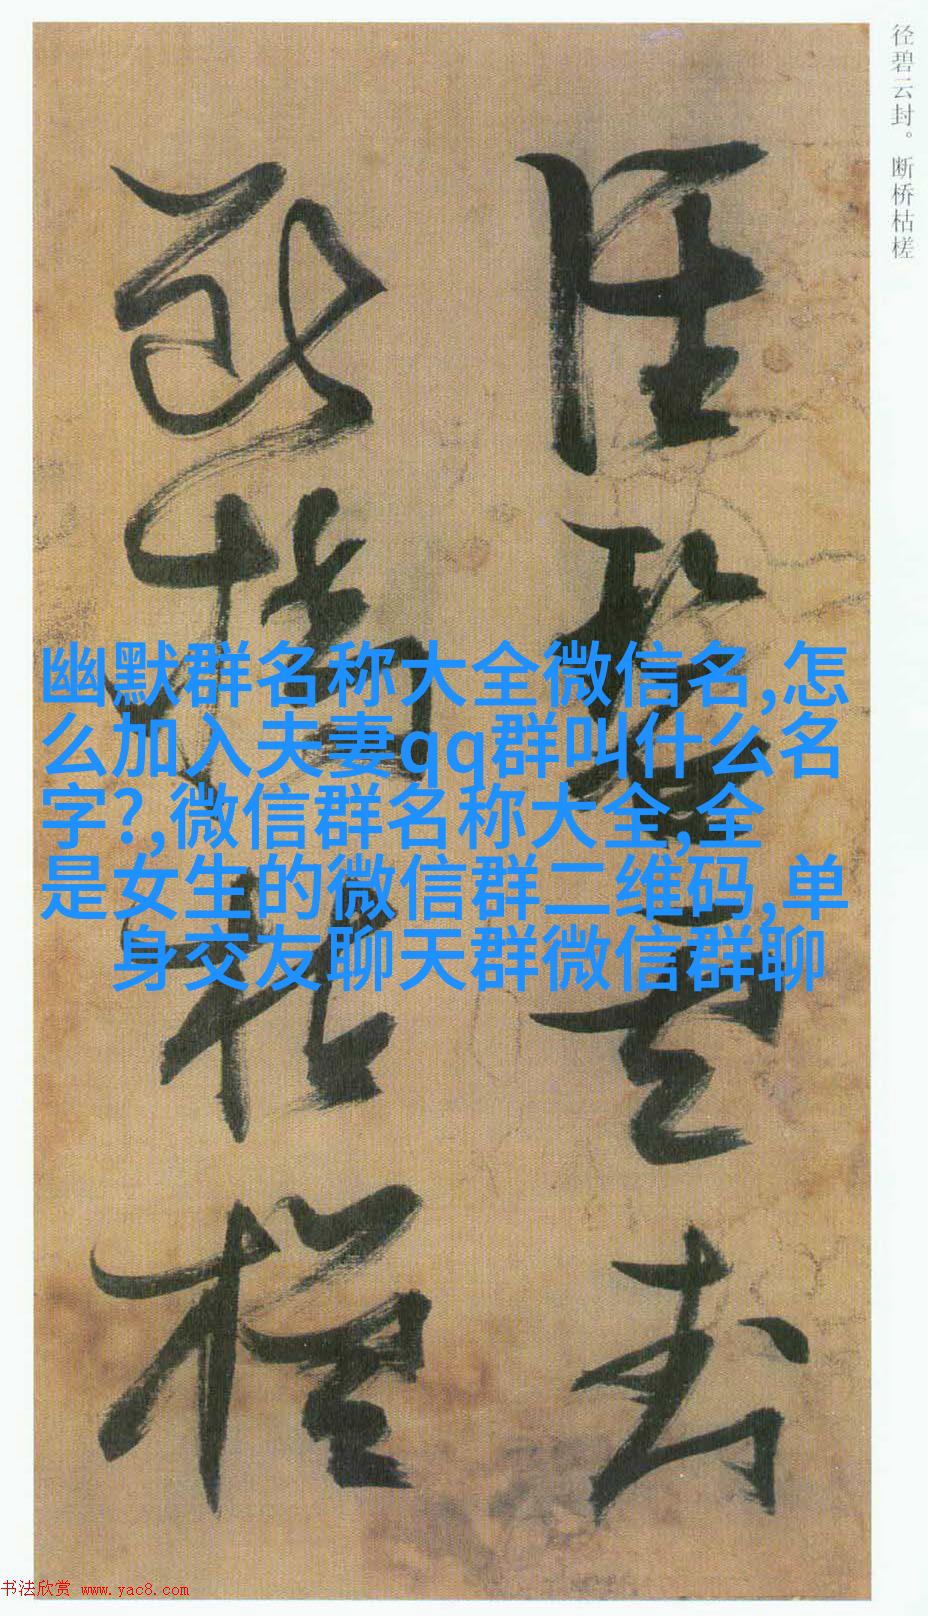 径碧云封。断桥枯槎
径碧云封
断桥枯槎
幽默群名称大全微信名,怎
么加入夫妻qq群叫什么名
字?,微信群名称大全,全
是女生的微信群二维码,单
身交友聊天群微信群聊
书法欣赏 www.yac8.com